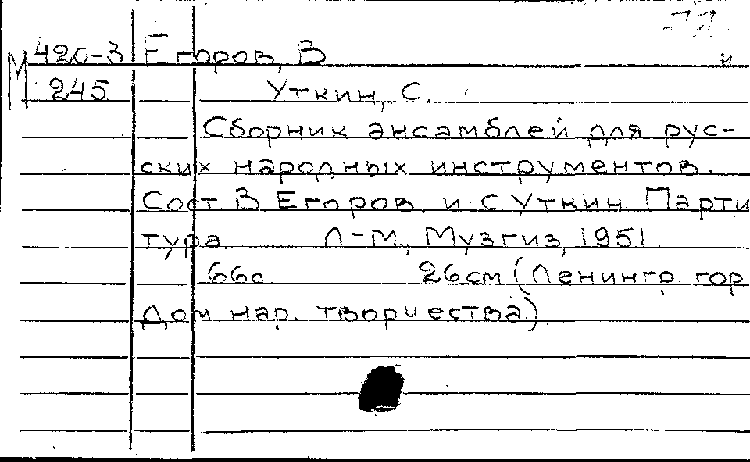 М 420-3 Егоров, В
245 Уткин, С.
Сборник ансамблей для рус-
ских народных инструментов.
Сост В Егоров и С Уткин Парти
тура Л-М, Музгиз, 1951
66с 26см (Ленингр гор
Дом нар. творчества)